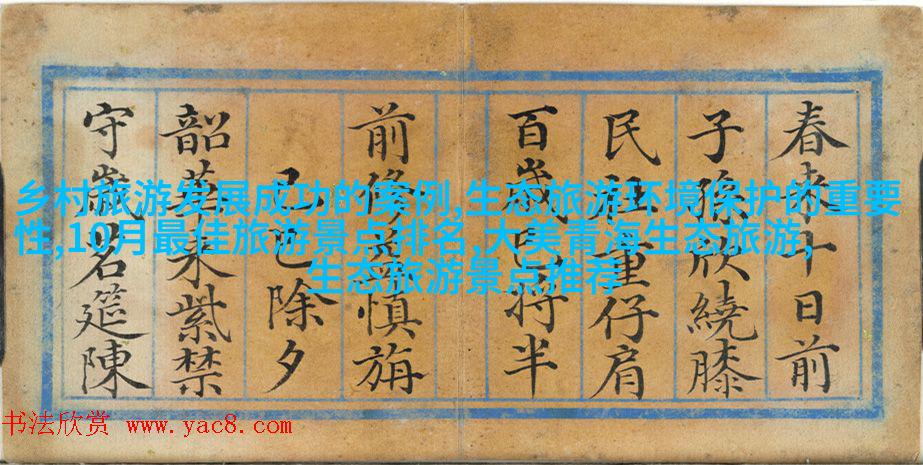 春來十日前
子孫欣繞膝
民社重仔肩
百歲將半
前修益慎旃
己巳除夕
韶華來紫禁
守歲茗筵陳
乡村旅游发展成功的案例,生态旅游环境保护的重要
性,10月最佳旅游景点排名,大美青海生态旅游,
生态旅游景点推荐
书法欣赏 www.yac8.com